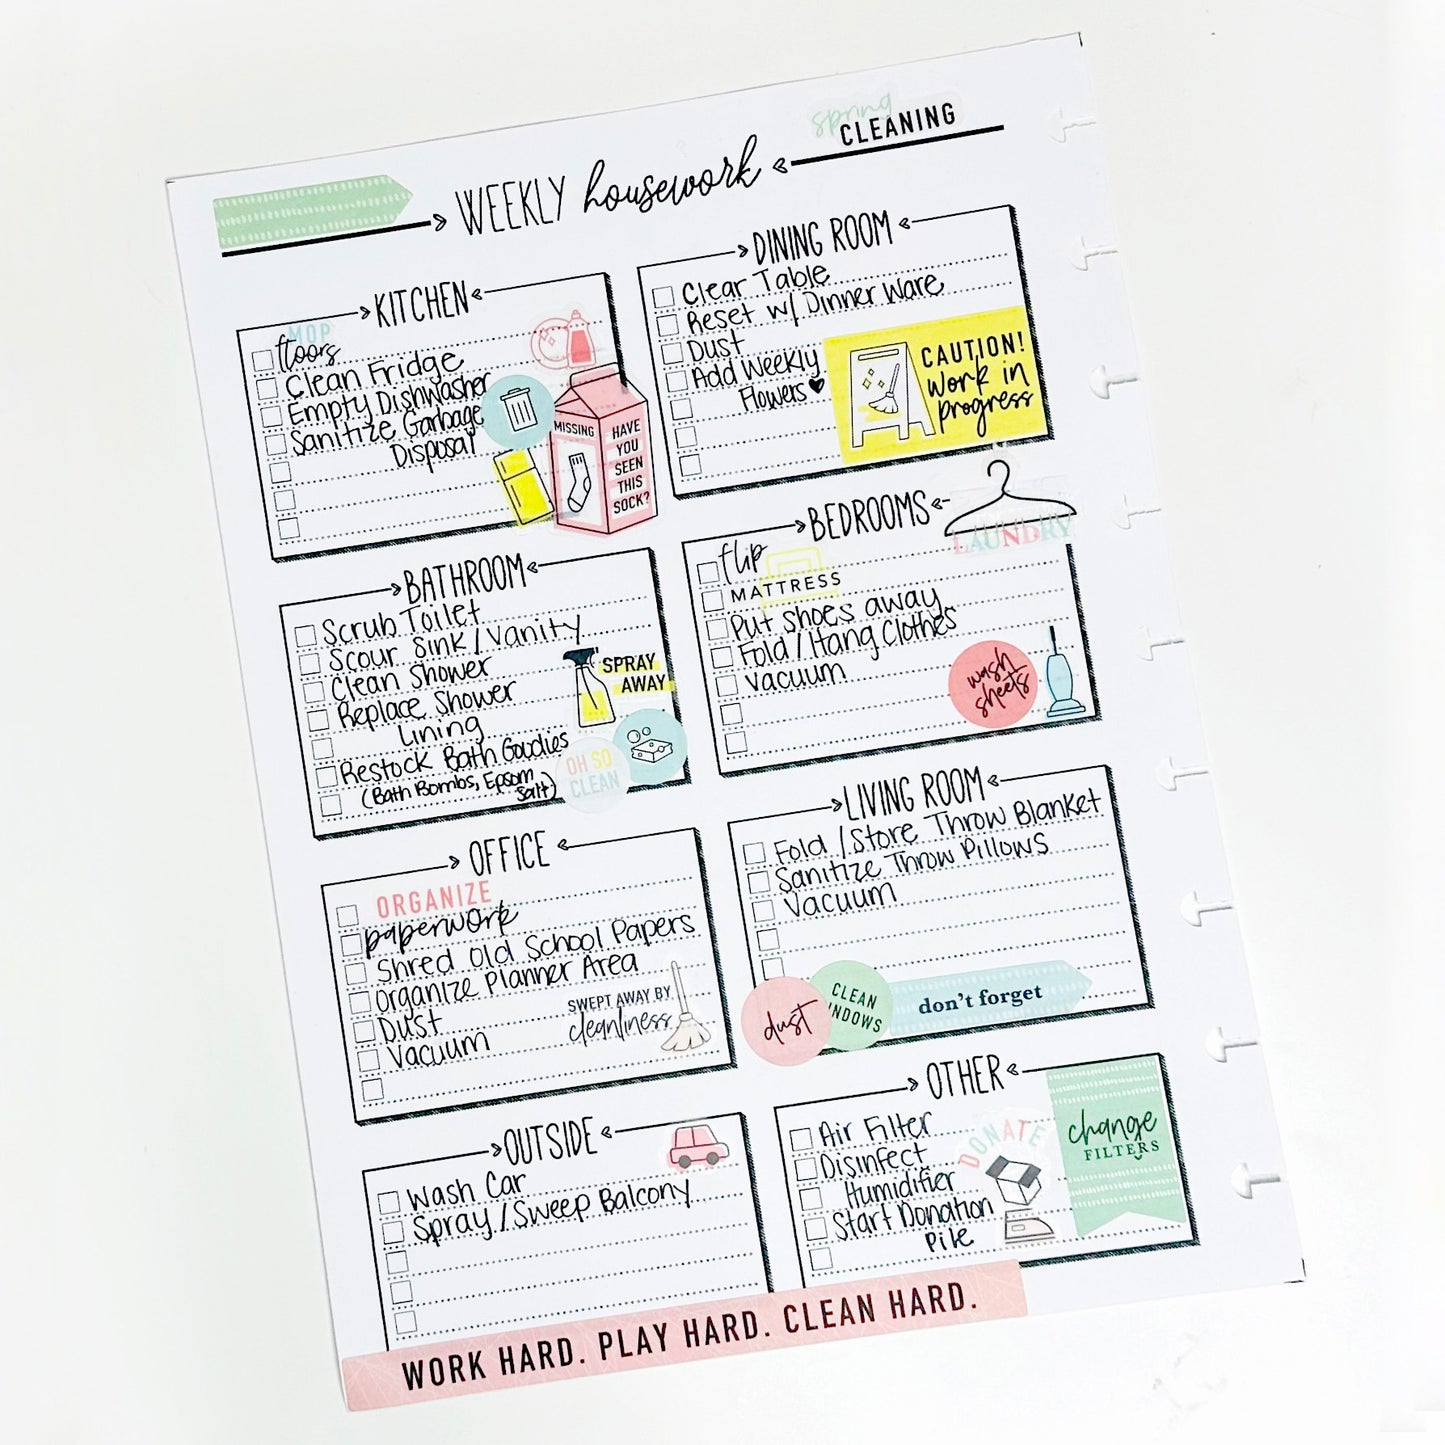 spring
CLEANING
WEEKLY housework
KITCHEN
MOP
floors
Clean Fridge
Empty Dishwasher
Sanitize Garbage
Disposal
MISSING
HAVE
YOU
SEEN
THIS
SOCK?
DINING ROOM
Clear Table
Reset w/ Dinner Ware
Dust
Add Weekly
Flowers ♥
CAUTION!
work in
progress
BATHROOM
Scrub Toilet
Scour Sink / Vanity
Clean Shower
Replace Shower
Lining
Restock Bath Goodies
(Bath Bombs, Epsom
Salt)
SPRAY
AWAY
OH SO
CLEAN
BEDROOMS
LAUNDRY
flip
MATTRESS
Put shoes away
Fold / Hang Clothes
Vacuum
wash
sheets
OFFICE
ORGANIZE
paperwork
Shred Old School Papers
Organize Planner Area
Dust
Vacuum
SWEPT AWAY BY
cleanliness
LIVING ROOM
Fold / Store Throw Blanket
Sanitize Throw Pillows
Vacuum
dust
CLEAN
INDOWS
don't forget
OUTSIDE
Wash Car
Spray / Sweep Balcony
OTHER
Air Filter
Disinfect
Humidifier
Start Donation
Pile
DONATE
change
FILTERS
WORK HARD. PLAY HARD. CLEAN HARD.